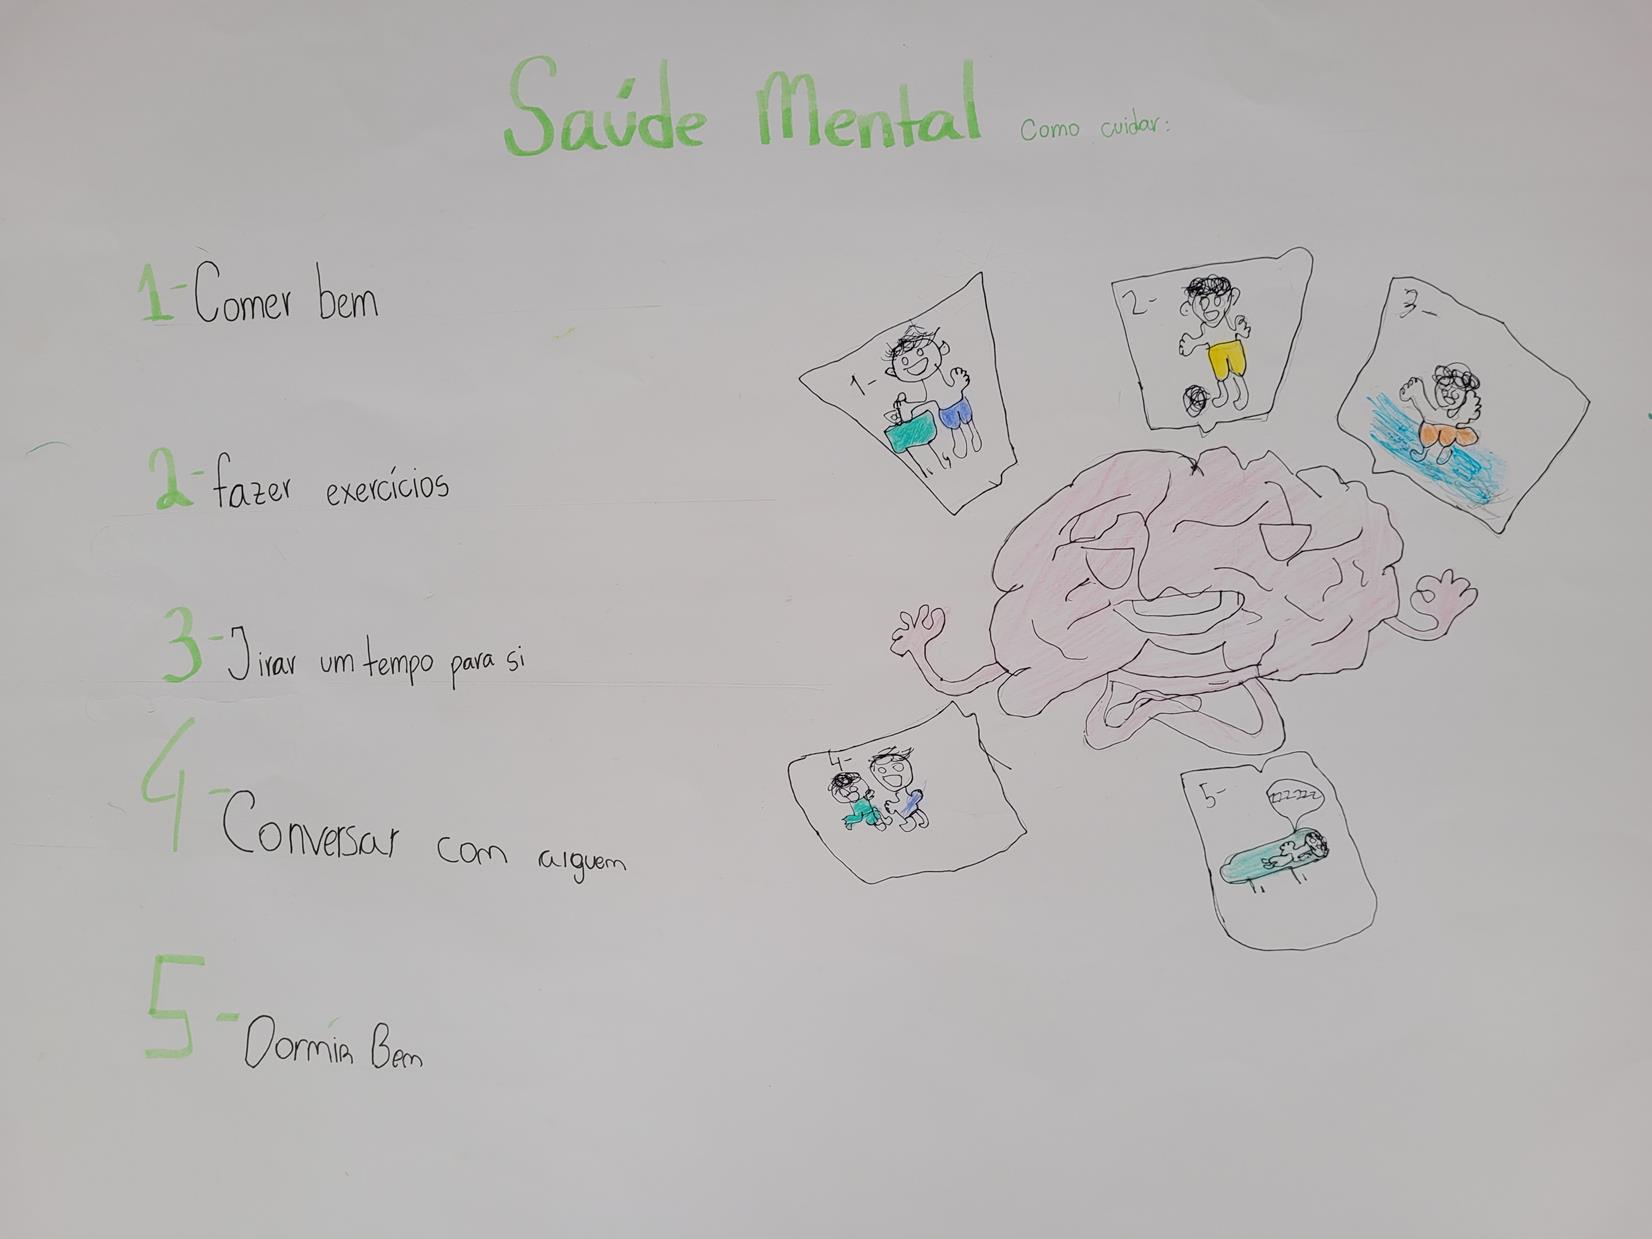 Saúde Mental Como cuidar:
1- Comer bem
2- fazer exercícios
3- Tirar um tempo para si
4- Conversar com alguem
5- Dormir Bem
1-
2-
3-
4-
5-
zzzzz